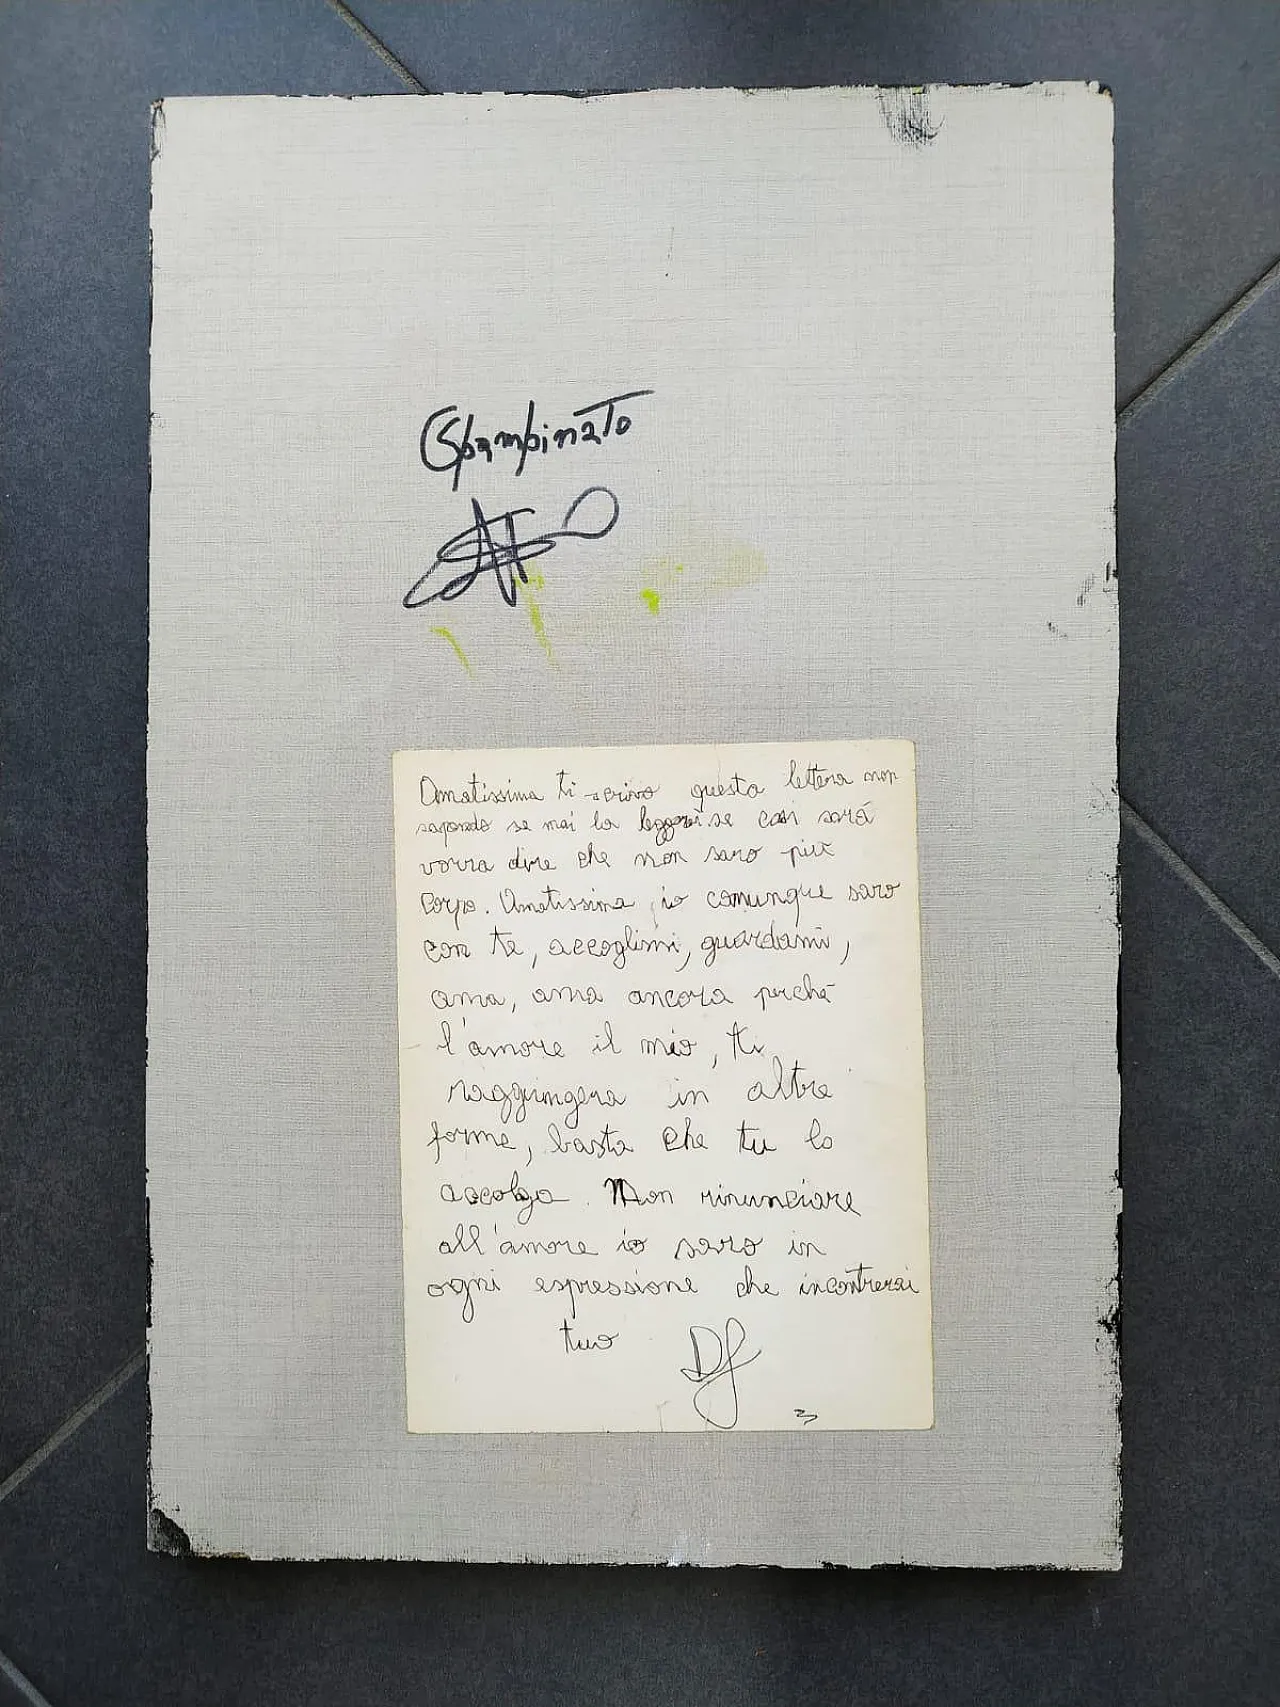 Gbambinato
Amatissima ti scrivo questa lettera non
sapendo se mai la leggerai se casi sará
vorra dire che non saro più
corpo. Amatissima io comunque saro
con te, accoglimi, guardami,
ama, ama ancora perché
l'amore il mio, ti
raggiungera in altre
forme, basta che tu lo
accolga. Non rinunciare
all'amore io saro in
ogni espressione che incontrerai
tuo